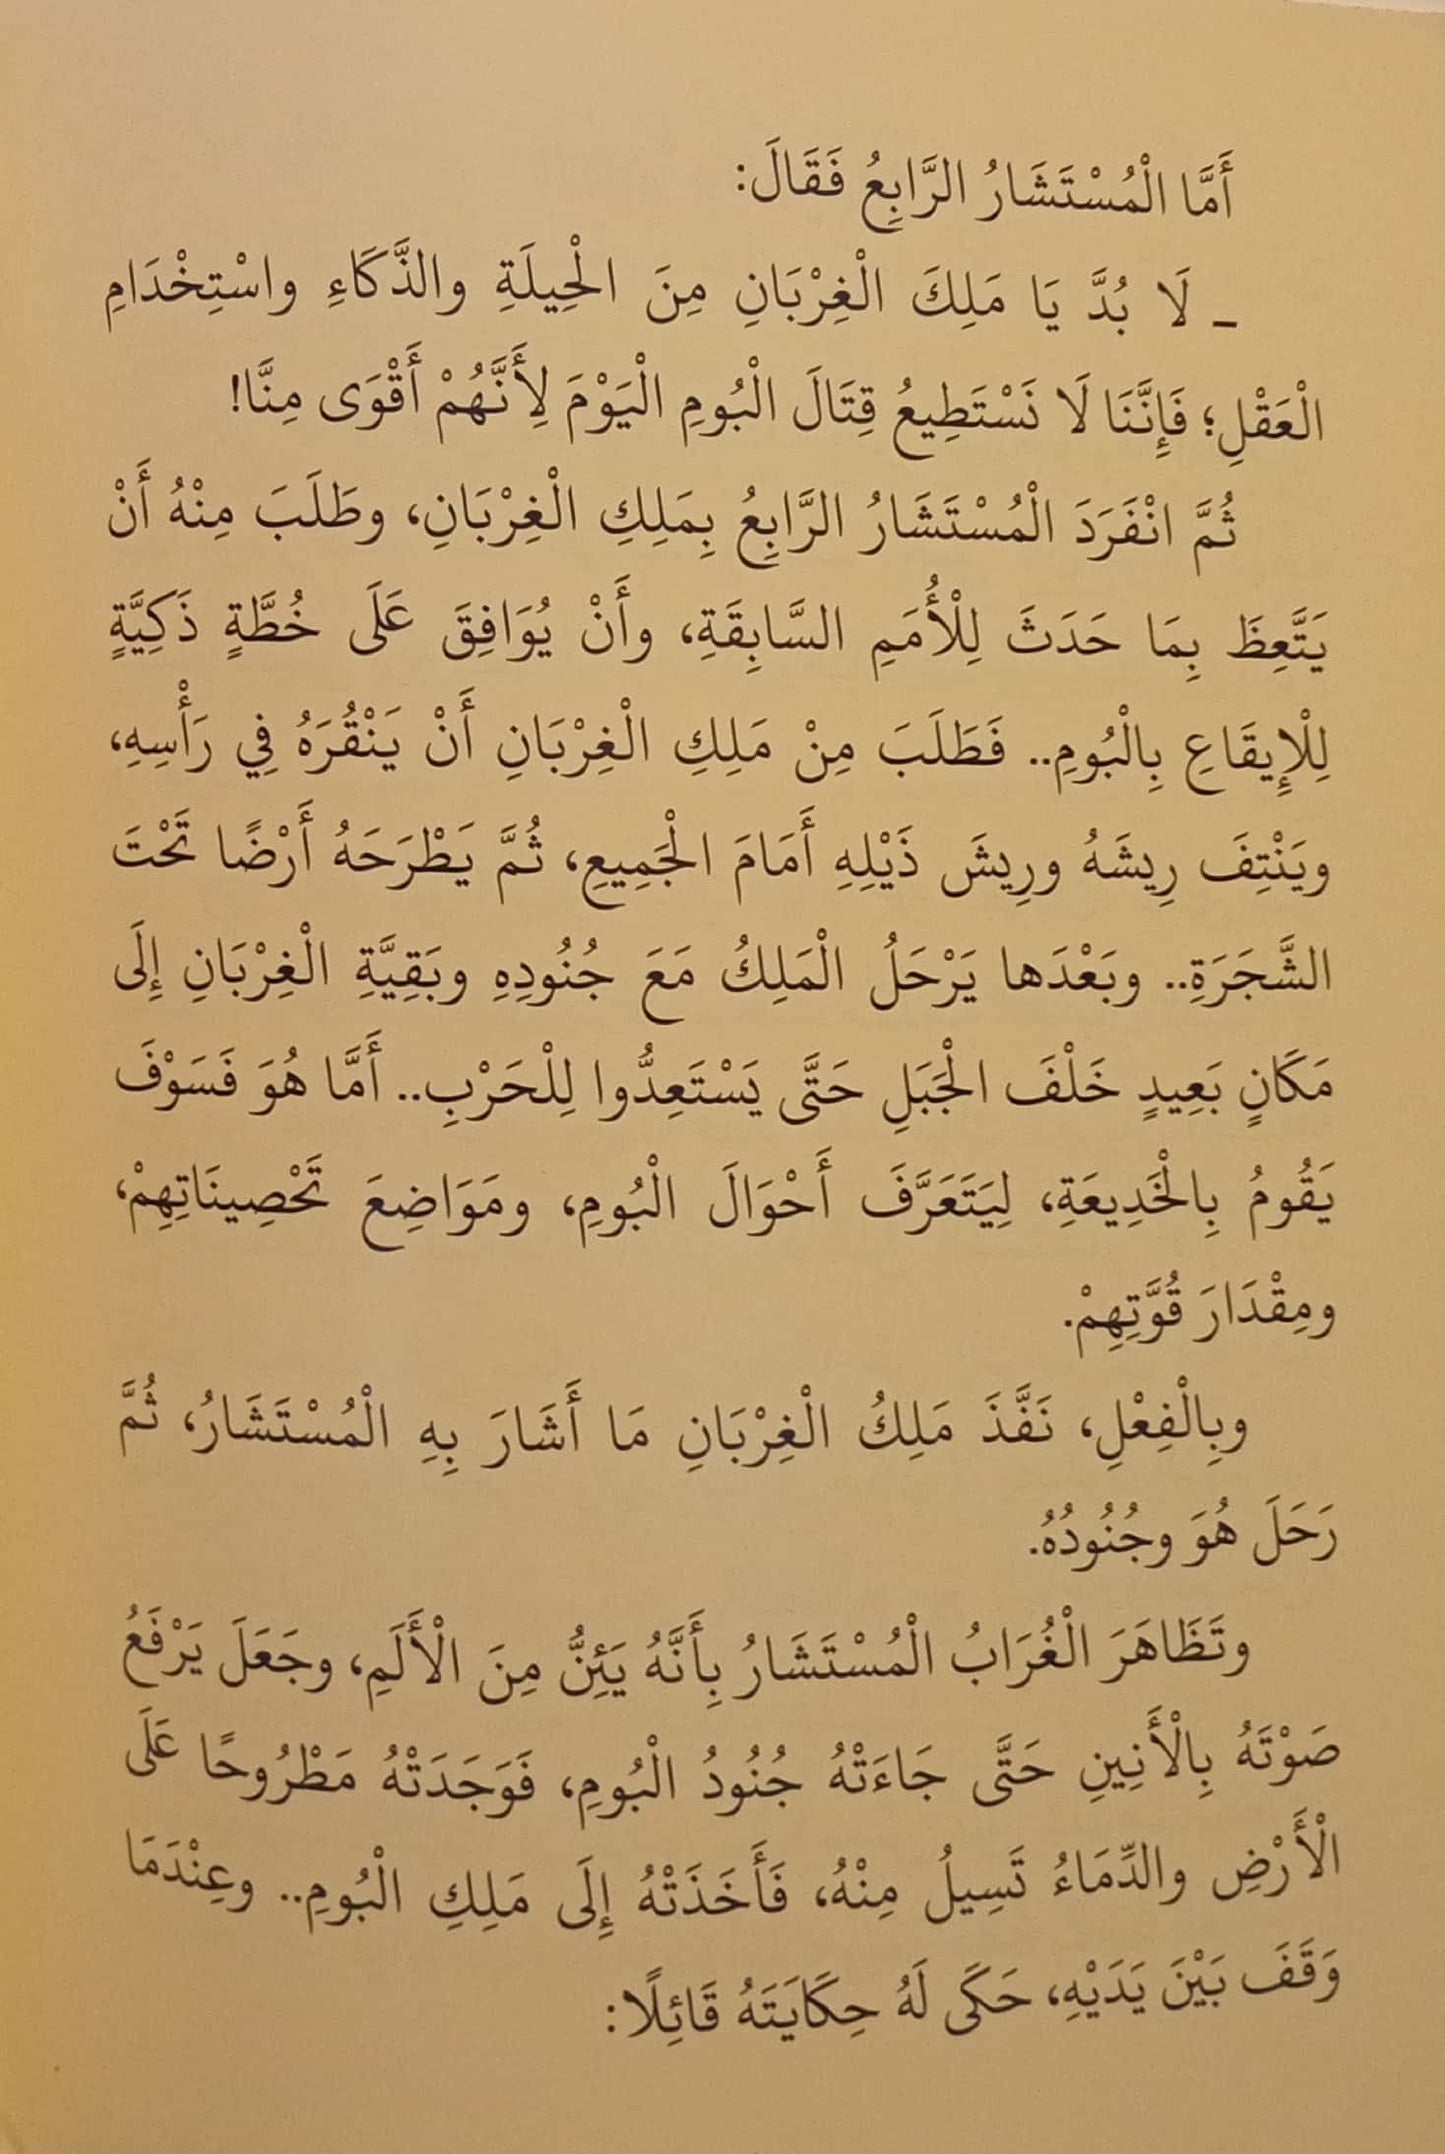 أَمَّا الْمُسْتَشَارُ الرَّابِعُ فَقَالَ:
ـ لَا بُدَّ يَا مَلِكَ الْغِرْبَانِ مِنَ الْحِيلَةِ والذَّكَاءِ واسْتِخْدَامِ
الْعَقْلِ؛ فَإِنَّنَا لَا نَسْتَطِيعُ قِتَالَ الْبُومِ الْيَوْمَ لِأَنَّهُمْ أَقْوَى مِنَّا!
ثُمَّ انْفَرَدَ الْمُسْتَشَارُ الرَّابِعُ بِمَلِكِ الْغِرْبَانِ، وطَلَبَ مِنْهُ أَنْ
يَتَّعِظَ بِمَا حَدَثَ لِلْأُمَمِ السَّابِقَةِ، وأَنْ يُوَافِقَ عَلَى خُطَّةٍ ذَكِيَّةٍ
لِلْإِيقَاعِ بِالْبُومِ.. فَطَلَبَ مِنْ مَلِكِ الْغِرْبَانِ أَنْ يَنْقُرَهُ فِي رَأْسِهِ،
ويَنْتِفَ رِيشَهُ ورِيشَ ذَيْلِهِ أَمَامَ الْجَمِيعِ، ثُمَّ يَطْرَحَهُ أَرْضًا تَحْتَ
الشَّجَرَةِ.. وبَعْدَها يَرْحَلُ الْمَلِكُ مَعَ جُنُودِهِ وبَقِيَّةِ الْغِرْبَانِ إِلَى
مَكَانٍ بَعِيدٍ خَلْفَ الْجَبَلِ حَتَّى يَسْتَعِدُّوا لِلْحَرْبِ.. أَمَّا هُوَ فَسَوْفَ
يَقُومُ بِالْخَدِيعَةِ، لِيَتَعَرَّفَ أَحْوَالَ الْبُومِ، ومَوَاضِعَ تَحْصِينَاتِهِمْ،
ومِقْدَارَ قُوَّتِهِمْ.
وبِالْفِعْلِ، نَفَّذَ مَلِكُ الْغِرْبَانِ مَا أَشَارَ بِهِ الْمُسْتَشَارُ، ثُمَّ
رَحَلَ هُوَ وجُنُودُهُ.
وتَظَاهَرَ الْغُرَابُ الْمُسْتَشَارُ بِأَنَّهُ يَئِنُّ مِنَ الْأَلَمِ، وجَعَلَ يَرْفَعُ
صَوْتَهُ بِالْأَنِينِ حَتَّى جَاءَتْهُ جُنُودُ الْبُومِ، فَوَجَدَتْهُ مَطْرُوحًا عَلَى
الْأَرْضِ والدِّمَاءُ تَسِيلُ مِنْهُ، فَأَخَذَتْهُ إِلَى مَلِكِ الْبُومِ.. وعِنْدَمَا
وَقَفَ بَيْنَ يَدَيْهِ، حَكَى لَهُ حِكَايَتَهُ قَائِلًا: